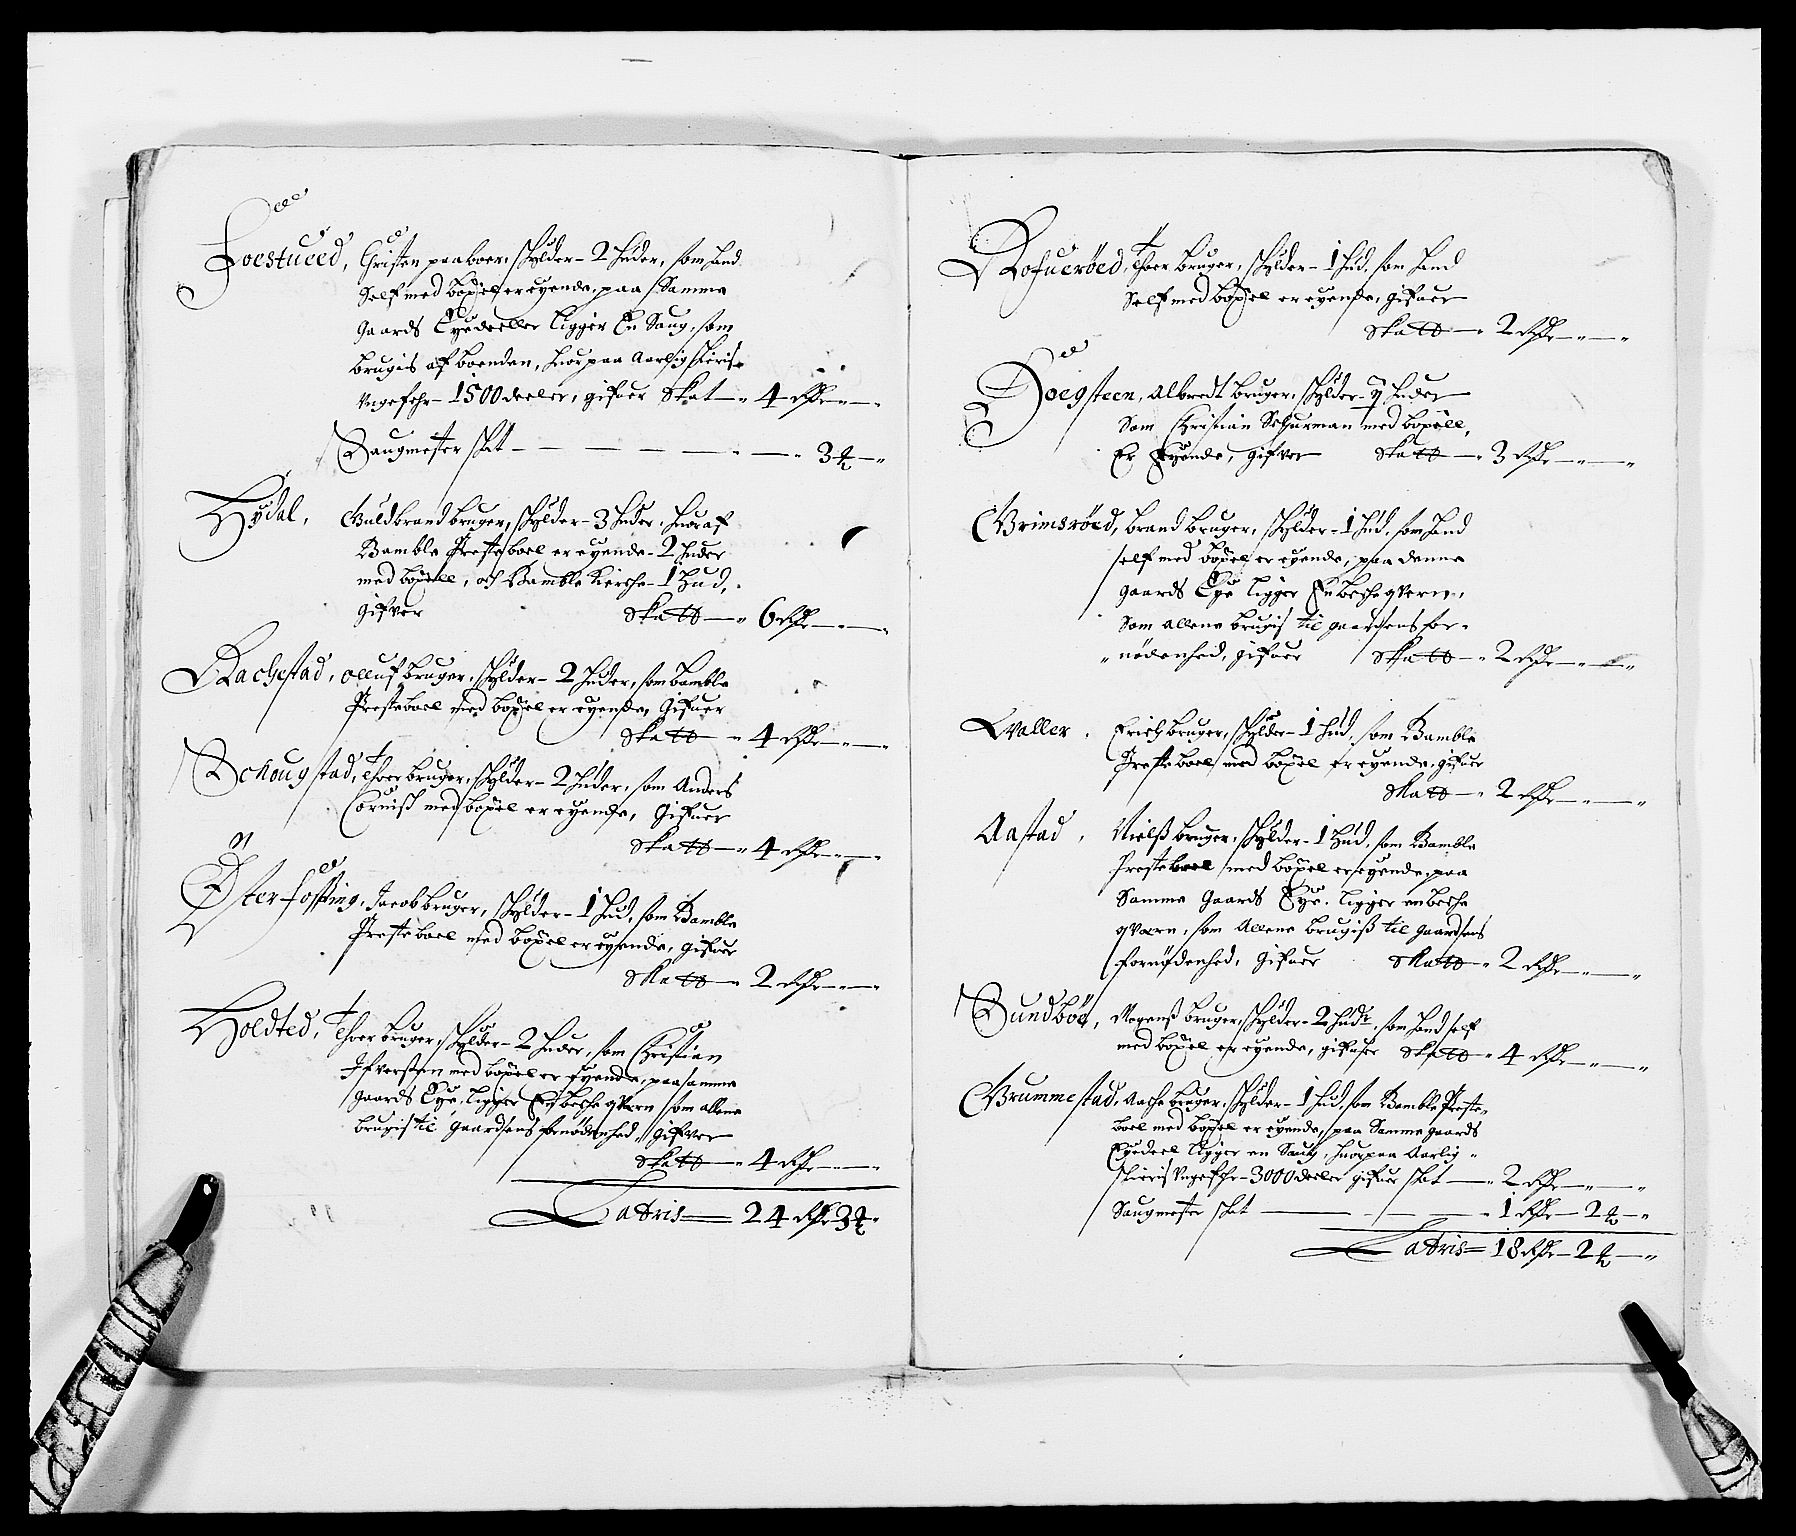 Foestued, Christen paaboer, schylder - 2 huder, som hand
Self med böxel er eyende, paa Samme
Gaards Eyedeeller ligger En Saug, som
brugis af bonden, huorpaa aarlig skieris
Ungefehr - 1500 deeler, gifuer Skat - 4 Rdr
Saugmester skat - 3 ℔
Hydal, Guldbrand bruger, schylder - 3 huder, huoraf
Bamble Presteboel er eyende - 2 huder
med böxell, och Bamble Kierche - 1 Hud,
gifver Skatt - 6 Rdr
Rachestad, Olluf bruger, schylder - 2 huder, som Bamble
Presteboel med böxel er eyende, Gifuer
Skatt - 4 Rdr
Schougstad, Thoer bruger, schylder - 2 huder, som Anders
Cornisch med böxel er eyende, Gifuer
Skatt - 4 Rdr
Østerfossing, Jacob bruger, schylder - 1 hud, som Bamble
Presteboel med böxel er eyende, gifuer
Skatt - 2 Rdr
Holdted, Thoer bruger, schylder - 2 huder, som Christian
Ifversten med böxel er Eyende, paa samme
gaards Eye, ligger En beche qvern som allene
brugis til gaardsens fornødenhed, gifver
Skatt - 4 Rdr
Latris = 24 Rdr 3 ℔
Rofueröed, Thoer bruger, schylder - 1 hud, som hand
Self med böxel er eyende, gifuer
Skatt - 2 Rdr
Doegsteen, Albredt bruger, schylder - huder
Som Christian Schurman med böxell,
Er Eyende, gifver Skatt - 3 Rdr
Grimsröed, brand bruger, schylder - 1 hud, som hand
self med böxel er eyende, paa denne
gaards Eye ligger En beche qvern,
Som allene brugis til gaardsens for-
nödenhed, gifuer Skatt - 2 Rdr
Valler, Erich bruger, schylder - 1 hud, som Bamble
Presteboel med böxel er eyende, gifuer
Skatt - 2 Rdr
Aastad, Nielß bruger, schylder - 1 Hud, som Bamble
Presteboel med böxel er eyende, paa
Samme Gaards Eye, ligger en beche
qvern, som Allene brugiß til gaardsens
fornödenhed, Gifuer Skatt - 2 Rdr
Sundböe, Mogenß bruger, schylder - 2 hudr, som hand self
med böxel er eyende, gifuer Skatt - 4 Rdr
Grummestad, Aache bruger, schylder - 1 hud, som Bamble Preste-
boel med böxel er eyende, paa Samme gaards
Eyedeel ligger en Saug, huorpaa Aarlig
skieris Ungefehr - 3000 deeler gifuer skat - 2 Rdr
Saugmester skat - 1 Rdr - 2 ℔
Latris = 18 Rdr - 2 ℔